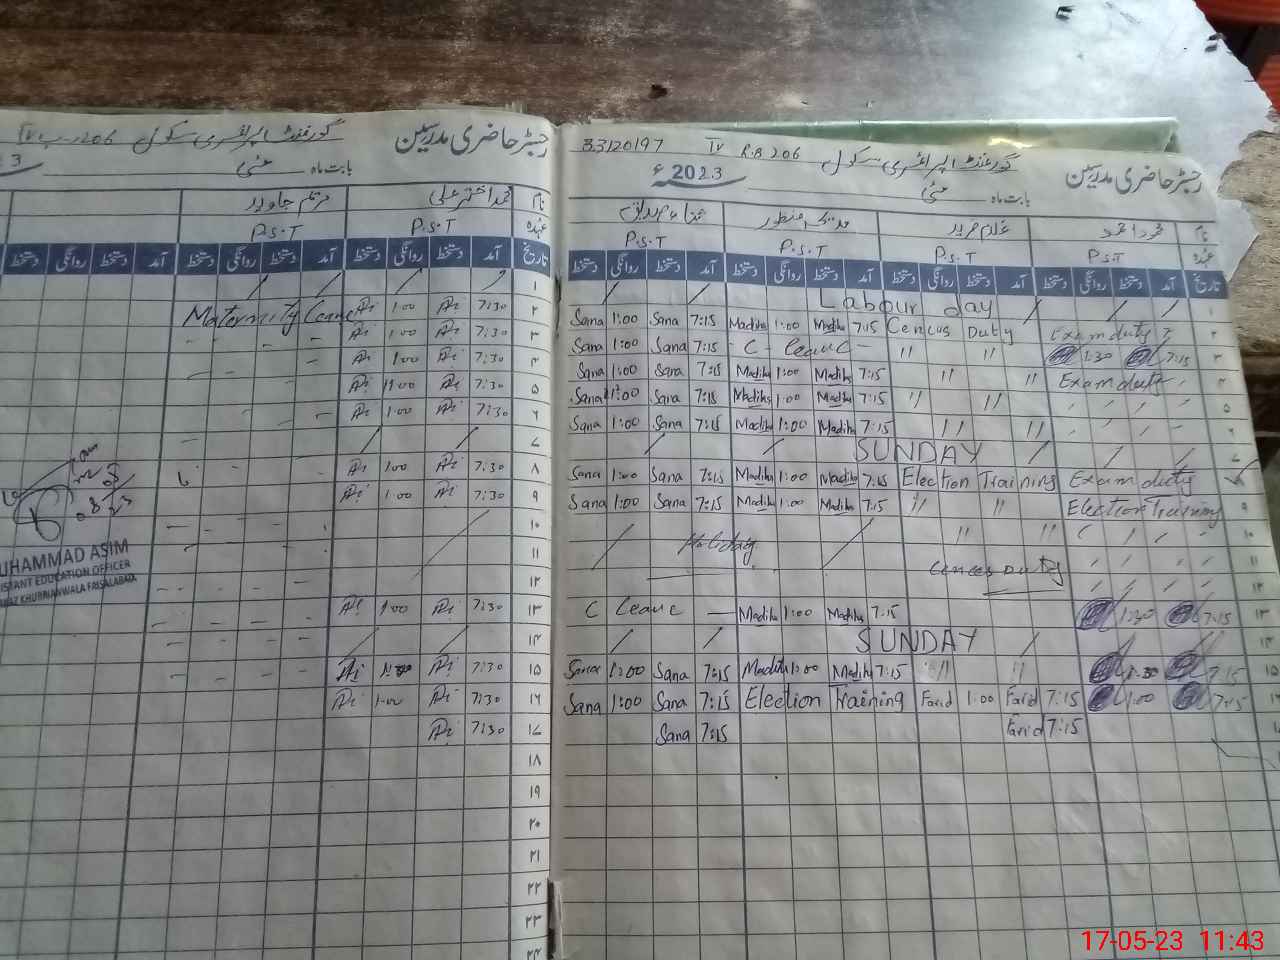 رجسٹر حاضری مدرسین گورنمنٹ ایلیمنٹری سکول 206 R.B IV 33120197
بابت ماہ مئی 2023ء
نام محمود احمد غلام فرید مدیحہ منظور ثناء
عہدہ P.S.T P.S.T P.S.T P.S.T
تاریخ آمد دستخط روانگی دستخط آمد دستخط روانگی دستخط آمد دستخط روانگی دستخط آمد دستخط روانگی دستخط
۱ Labour day
۲ Sana 1:00 Sana 7:15 Madiha 1:00 Madiha 7:15 Cencus Duty Exam duty
۳ Sana 1:00 Sana 7:15 C - leave - 〃 〃 1:30 7:15
Sana 1:00 Sana 7:15 Madiha 1:00 Madiha 7:15 〃 〃 Exam duty
۵ Sana 1:00 Sana 7:15 Madiha 1:00 Madiha 7:15 〃 〃
Sana 1:00 Sana 7:15 Madiha 1:00 Madiha 7:15 〃 〃
SUNDAY
Sana 1:00 Sana 7:15 Madiha 1:00 Madiha 7:15 Election Training Exam duty
۹ Sana 1:00 Sana 7:15 Madiha 1:00 Madiha 7:15 〃 〃 Election Training
۱۰ Holiday 〃 〃
۱۱ Cences Duty
۱۲
۱۳ C leave — Madiha 1:00 Madiha 7:15 1:30 7:15
۱۴ SUNDAY
۱۵ Sana 1:00 Sana 7:15 Madiha 1:00 Madiha 7:15 〃 〃 1:30 7:15
Sana 1:00 Sana 7:15 Election Training Farid 1:00 Farid 7:15 1:00 7:15
Sana 7:15 Farid 7:15
رجسٹر حاضری مدرسین گورنمنٹ ایلیمنٹری سکول 206 ر-ب IV
بابت ماہ مئی 3
نام محمد اختر علی مریم جاوید
عہدہ P.S.T P.S.T
تاریخ آمد دستخط روانگی دستخط آمد دستخط روانگی دستخط آمد دستخط روانگی دستخط
۱
۲ Maternity Leave 1:00 7:30
۳ 1:00 7:30
۴ 1:00 7:30
۵ 1:00 7:30
۶ 1:00 7:30
۷
۸ 1:00 7:30
۹ 1:00 7:30
۱۰
۱۱
۱۲
۱۳ 1:00 7:30
۱۴
۱۵ 7:30
۱۶ 1:00 7:30
۱۷ 7:30
۱۸
۱۹
۲۰
۲۱
۲۲
۲۳
UHAMMAD ASIM
ISTANT EDUCATION OFFICER
KHURRIANWALA FAISALABAD
17-05-23 11:43